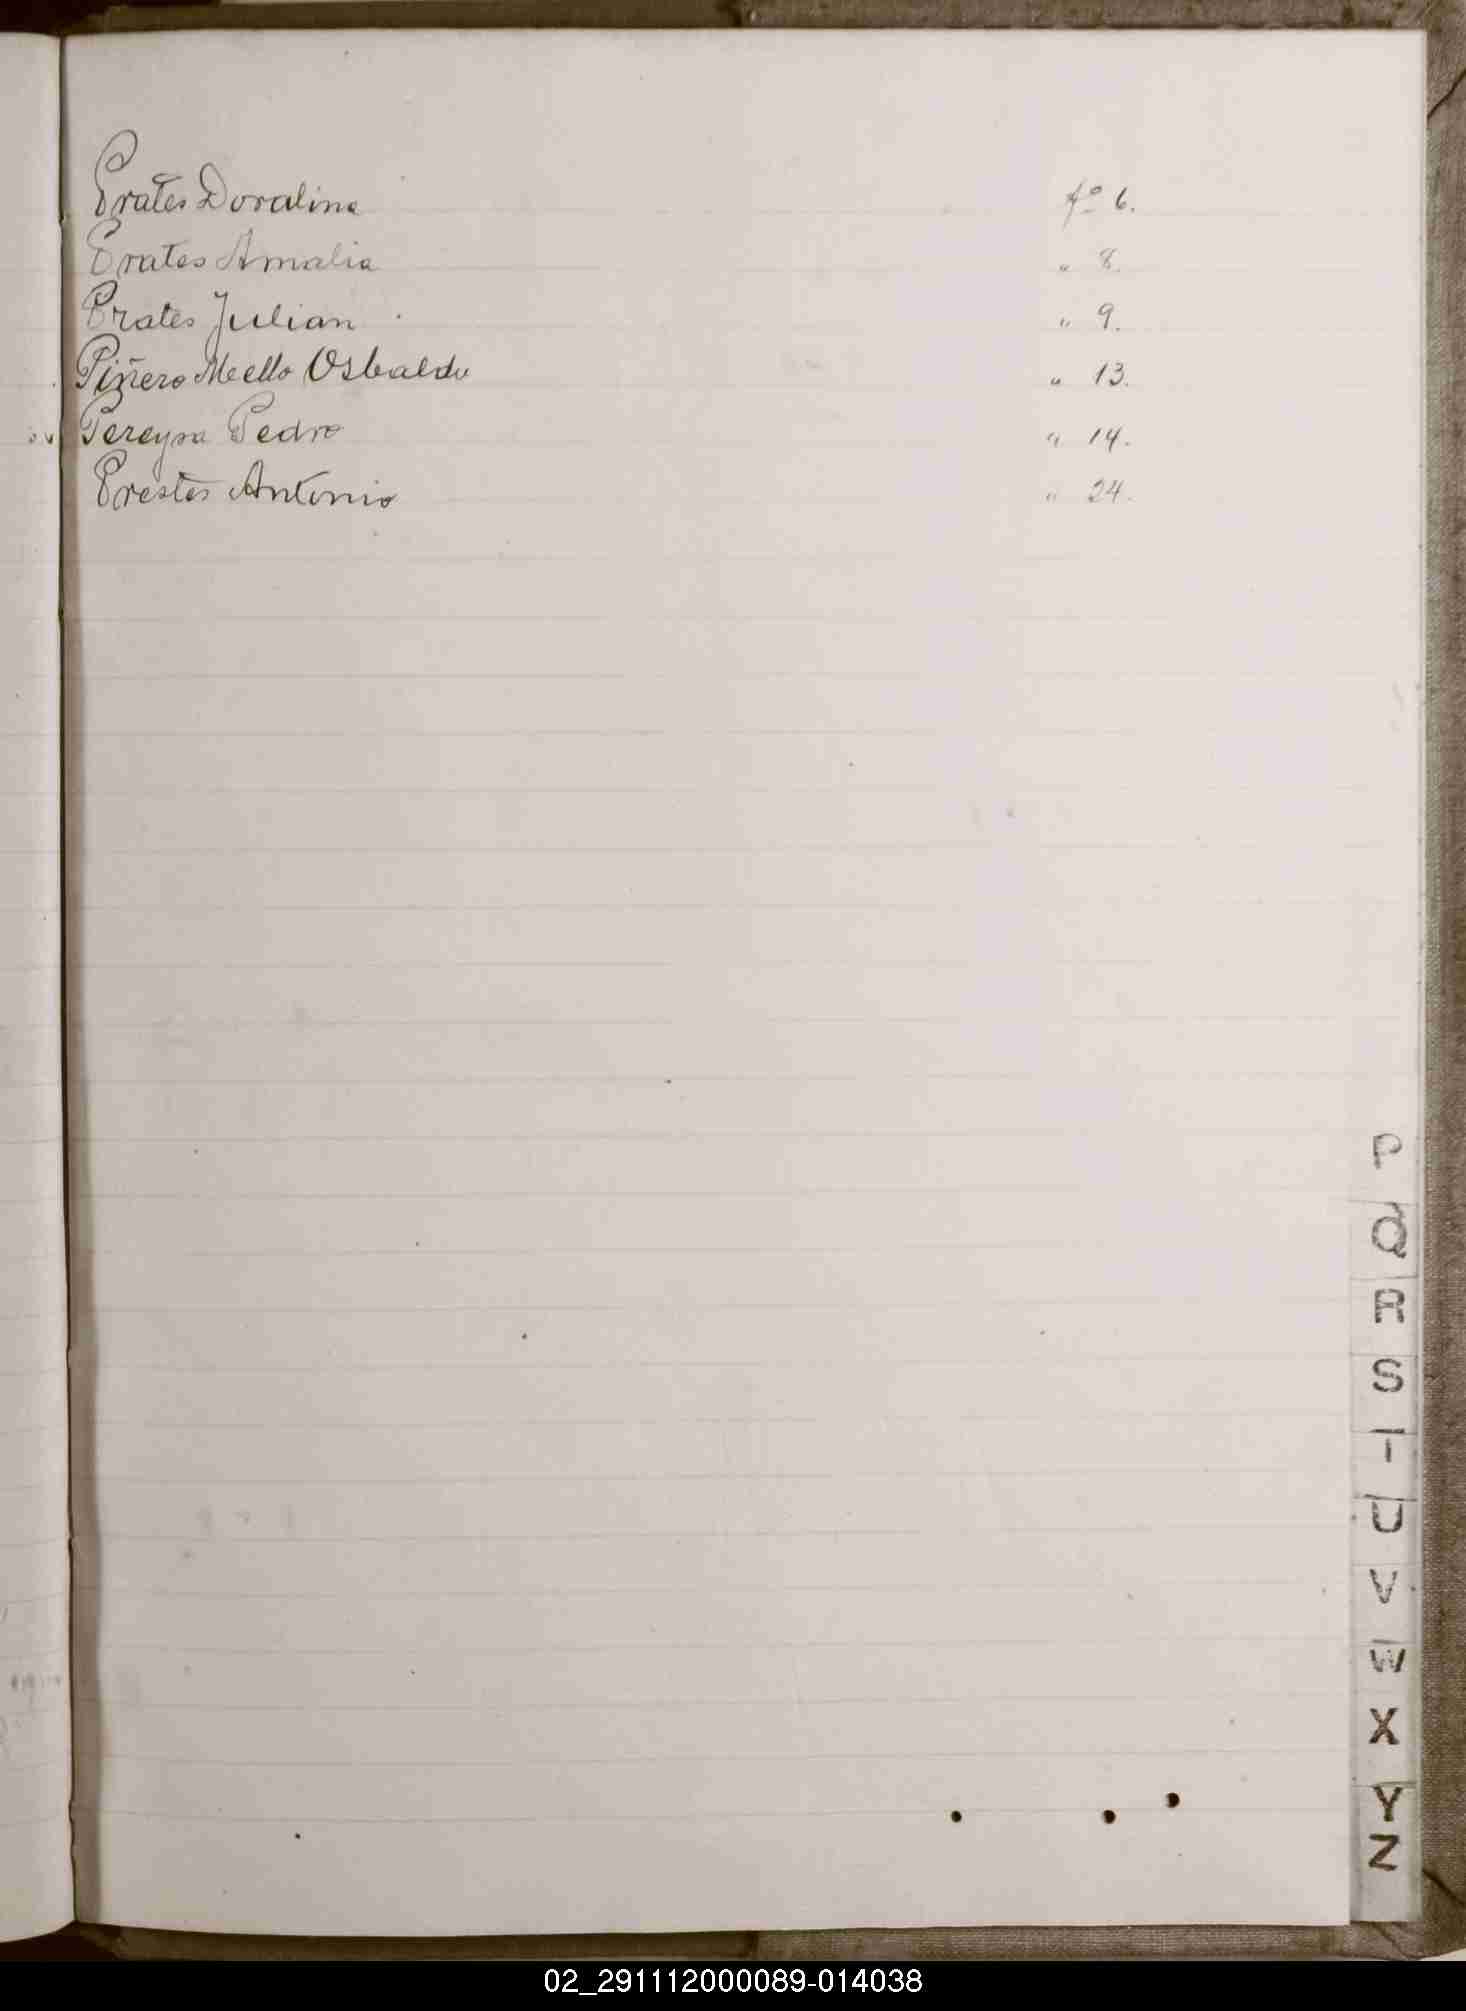 Prates Doralina fº 6.
Prates Amalia " 8.
Prates Julian " 9.
Piñero Mello Osbaldo " 13.
Pereyra Pedro " 14.
Prestes Antonio " 24.
P
Q
R
S
T
U
V
W
X
Y
Z
02_291112000089-014038